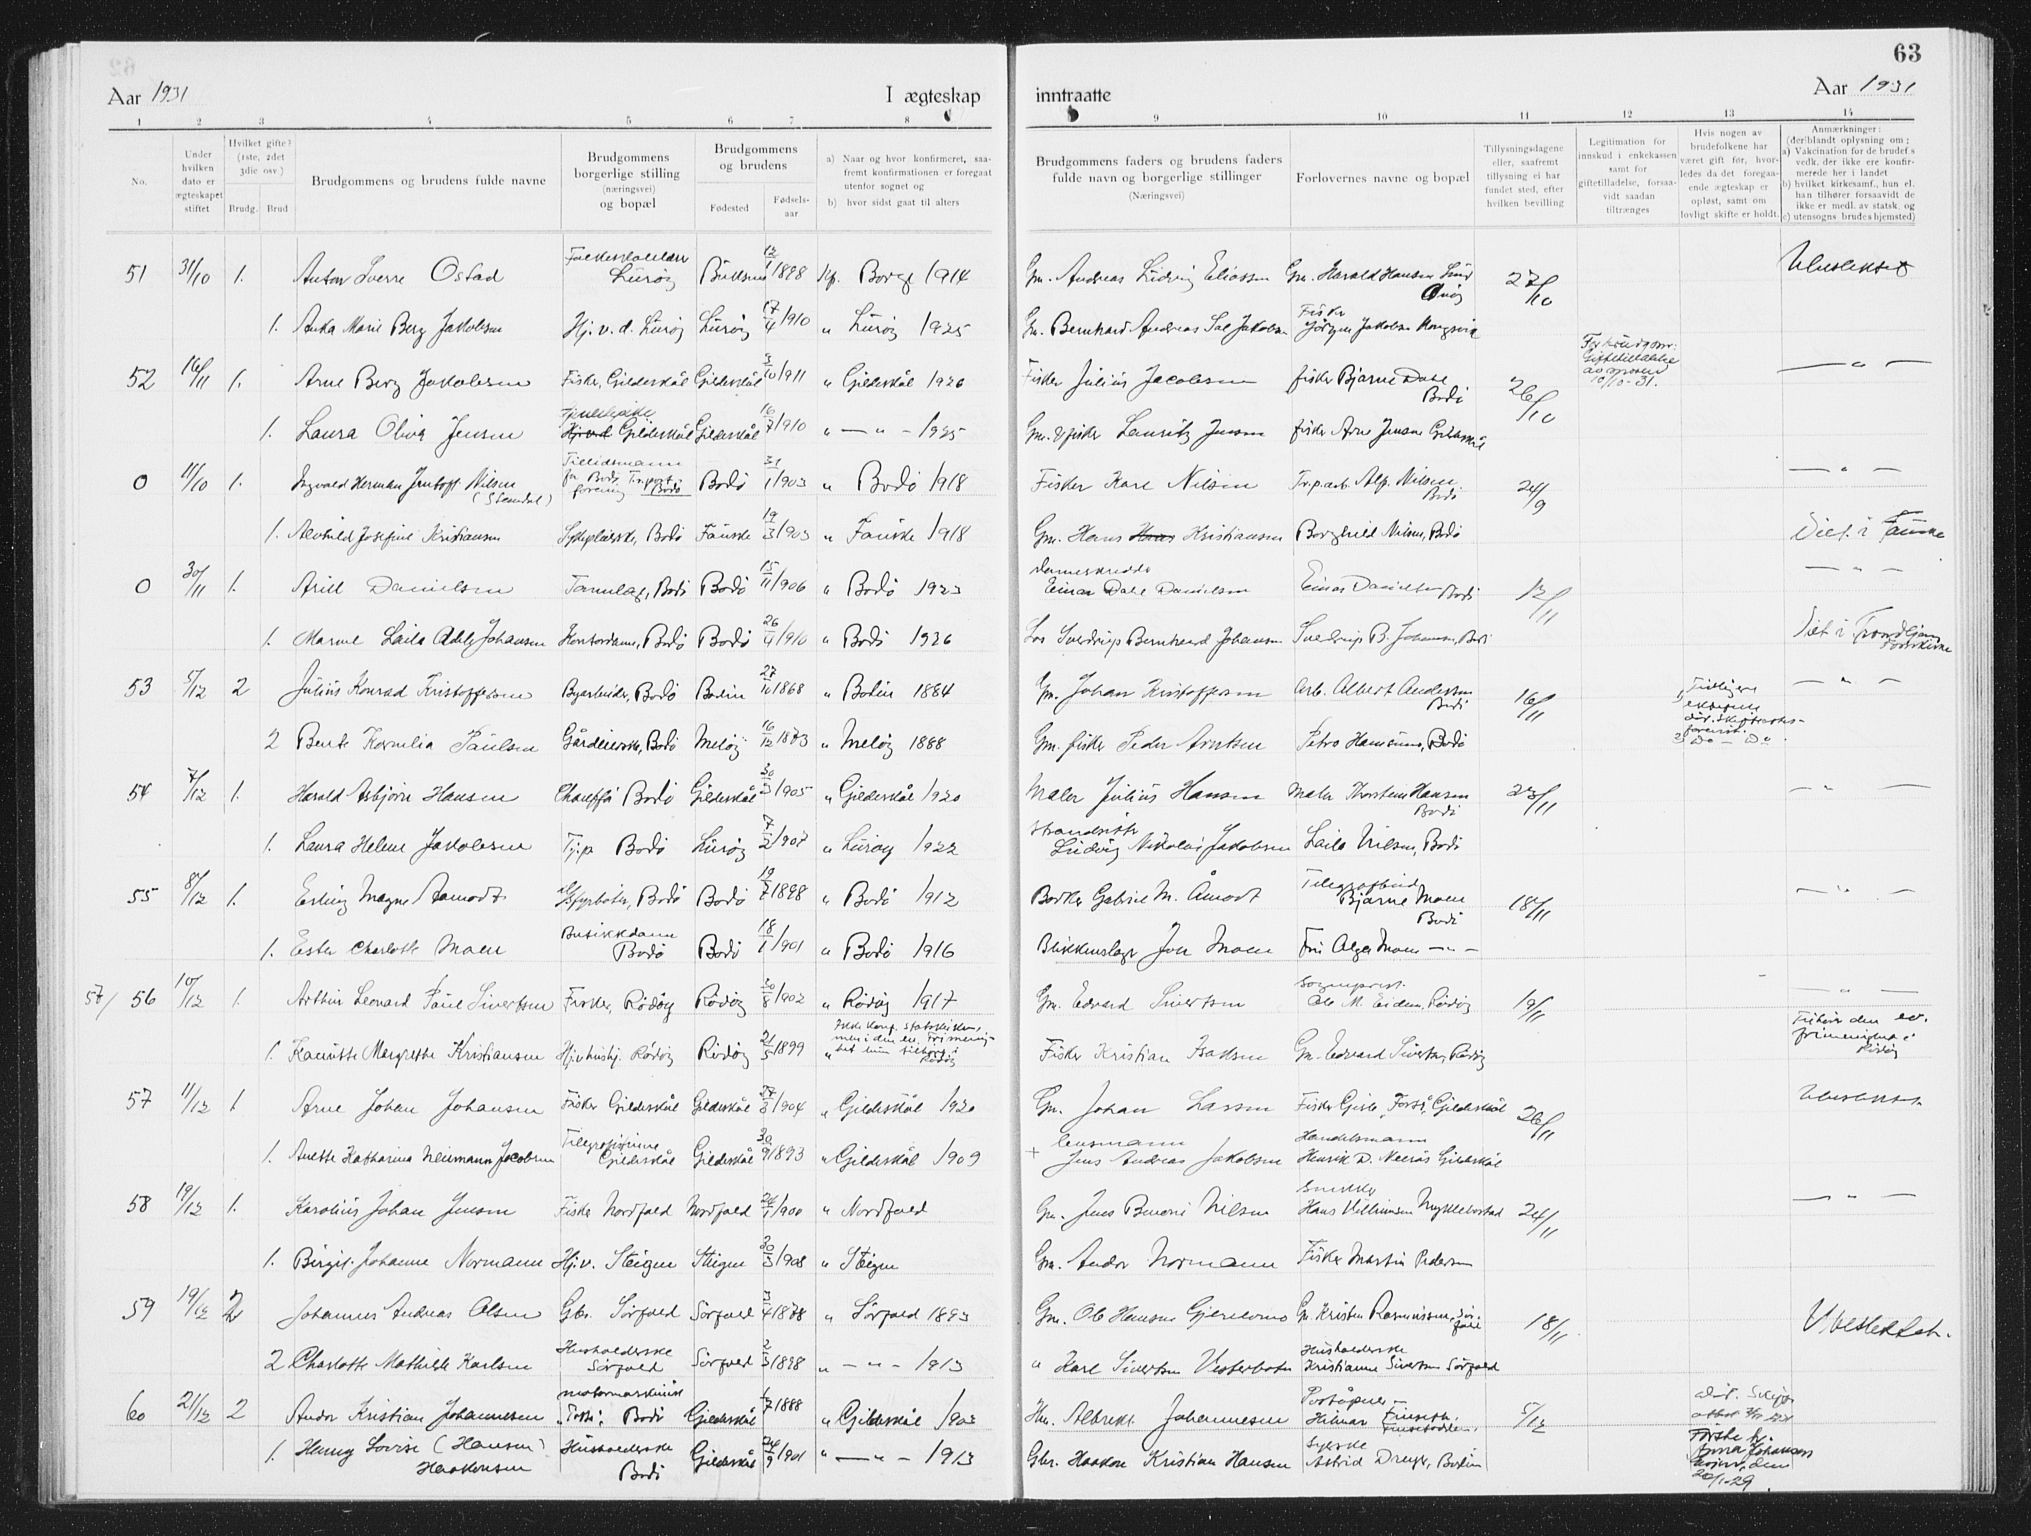 63
Aar 1931
I ægteskap
inntraatte
Aar 1931
1 2 3 4 5 6 7 8 9 10 11 12 13 14
No.
Under hvilken dato er ægteskapet stiftet
Hvilket gifte? (1ste, 2det 3die osv.)
Brudg. Brud
Brudgommens og brudens fulde navne
Brudgommens borgerlige stilling (næringsvei) og bopæl
Brudgommens og brudens
Fødested
Fødsels-aar
a) Naar og hvor konfirmeret, saa-fremt konfirmationen er foregaat utenfor sognet og
b) hvor sidst gaat til alters
Brudgommens faders og brudens faders fulde navn og borgerlige stillinger
(Næringsvei)
Forlovernes navne og bopæl
Tillysningsdagene eller, saafremt tillysning ei har fundet sted, efter hvilken bevilling
Legitimation for innskud i enkekassen samt for giftetilladelse, forsaa-vidt saadan tiltrænges
Hvis nogen av brudefolkene har været gift før, hvor-ledes da det foregaa-ende ægteskap er opløst, samt om lovligt skifte er holdt.
Anmærkninger: (deriblandt oplysning om:
a) Vakcination for de brudef.s vedk. der ikke ere konfir-merede her i landet
b) hvilket kirkesamf., hun el. han tilhører forsaavidt de ikke er medl. av statsk. og
c) utensogns brudes hjemsted)
51 31/10 1. Anton Sverre Ostad Lurøy 13/1 1898 Kf. Borge 1914 Gm. Andreas Ludvig Eliassen Gm. Harald Hansen 27/10 Ubeslektet
1. Anka Marie Berg Jakobsen Hj. v. d. Lurøy Lurøy 17/4 1910 " Lurøy 1925 Gm. Bernhard Andreas Jakobsen Fisker Jørgen Jakobsen
52 14/11 1. Arne Berg Jakobsen Fisker, Gildeskål Gildeskål 3/10 1911 " Gildeskål 1926 Fisker Julius Jacobsen fisker Bjarne Dahl Bodø 26/10 10/10-31. — " —
1. Laura Oliva Jensen Hj.v.d. Gildeskål Gildeskål 16/7 1910 " — " — 1925 Gm. & fisker Lauritz Jensen fisker Arne Jensen Gildeskål
0 11/10 1. Ingvald Herman Jentoft Nilsen (Stemdal) Tillidsmann for Bodø Tr.port forening Bodø Bodø 31/1 1903 " Bodø 1918 Fisker Karl Nilsen Tr.p.arb. Alf. Nilsen Bodø 24/9 — " —
1. Alvhild Josefine Kristiansen Sykepleierske, Bodø Fauske 19/3 1903 " Fauske 1918 Gm. Hans Kristiansen Borghild Nilsen, Bodø Viet i Fauske
0 30/11 1. Arild Danielsen Tannlæg, Bodø Bodø 15/11 1906 " Bodø 1923 Einar Dahl Danielsen Einar Danielsen Bodø 12/11 — " —
1. Marine Laila Adele Johansen Kontordame, Bodø Bodø 26/4 1910 " Bodø 1926 Los Sverdrup Bernhard Johansen Sverdrup B. Johansen, Bodø Viet i Trondhjem
53 5/12 2 Julius Konrad Kristoffersen Byarbeider, Bodø Bodin 27/10 1868 " Bodin 1884 Gm. Johan Kristoffersen Arb. Albert Andersen Bodø 16/11 — " —
2 Berit Kornelia Paulsen Gårdeierske, Bodø Meløy 16/12 1873 " Meløy 1888 Gm. fisker Peder Arntsen Petra Hansen, Bodø
54 7/12 1. Harald Asbjørn Hansen Chauffør Bodø Gildeskål 30/3 1905 " Gildeskål 1920 Maler Julius Hansen Maler Thorstein Hansen Bodø 23/11 — " —
1. Laura Helene Jakobsen Tj.p. Bodø Lurøy 7/2 1907 " Lurøy 1922 Strandsitter Ludvig Nikolai Jakobsen Laila Nilsen, Bodø
55 8/12 1. Erling Magne Aamodt Fyrbøter, Bodø Bodø 19/7 1898 " Bodø 1912 Bødker Gabriel M. Åmodt Telegrafbud Bjarne Moen Bodø 18/11 — " —
1. Ester Charlotte Moen Butikkdame Bodø Bodø 18/1 1901 " Bodø 1916 Blikkenslager Jon Moen Fru Olga Moen — " —
57/ 56 10/12 1. Arthur Leonard Paul Sivertsen Fisker, Rødøy Rødøy 30/8 1902 " Rødøy 1917 Gm. Edvard Sivertsen Sogneprest. Ole M. Eidem, Rødøy 19/11
1. Kanutte Margrethe Kristiansen Hj.v.hushj. Rødøy Rødøy 21/5 1899 Ikke konf. i statskirken, men i den ev. Rødøy Fisker Kristian Isaksen Gm. Edvard Sivertsen, Rødøy Tilhører den ev. frimenighet i Rødøy
57 11/12 1 Arne Johan Johansen Fisker Gildeskål Gildeskål 27/8 1904 " Gildeskål 1920 Gm. Johan Larsen Gildeskål 26/11 Ubeslektet.
1. Anette Katharina Neumann Jacobsen Gildeskål Gildeskål 30/9 1893 " Gildeskål 1909 + lensmann Jens Andreas Jakobsen Handelsmann Henrik D. Gildeskål
58 19/12 1. Karolius Johan Jensen Fisker Nordfold Nordfold 24/1 1900 " Nordfold Gm. Jens Benoni Nilsen Snekker Hans Vilhelmsen Myklebostad 24/11 — " —
1. Birgit Johanne Normann Hj.v. Steigen Steigen 30/3 1908 " Steigen Gm. Andor Normann Fisker Martin Pedersen
59 19/12 2 Johannes Andreas Olsen Gbr. Sørfold Sørfold 3/4 1878 " Sørfold 1893 Gm. Ole Hansen Gm. Kristen Rasmussen, Sørfold 18/11 Ubeslektet.
2 Charlotte Mathilde Karlsen Husholderske Sørfold Sørfold 2/3 1898 " — " — 1913 " Karl Sivertsen Vesterbotn Husholderske Kristianne Sivertsen Sørfold
60 21/12 2 Andor Kristian Johannesen motormaskinist Bodø Gildeskål 1/7 1888 " Gildeskål 1903 Albrekt Johannesen Poståpner Hilmar Finseth 5/12
1. Henny Lovise (Hansen) Haakensen Husholderske Bodø Gildeskål 24/9 1901 " — " — 1913 Gbr. Haakon Kristian Hansen Syerske Astrid Dreyer, Bodin Første h. Anna Johansen 20/1-29.